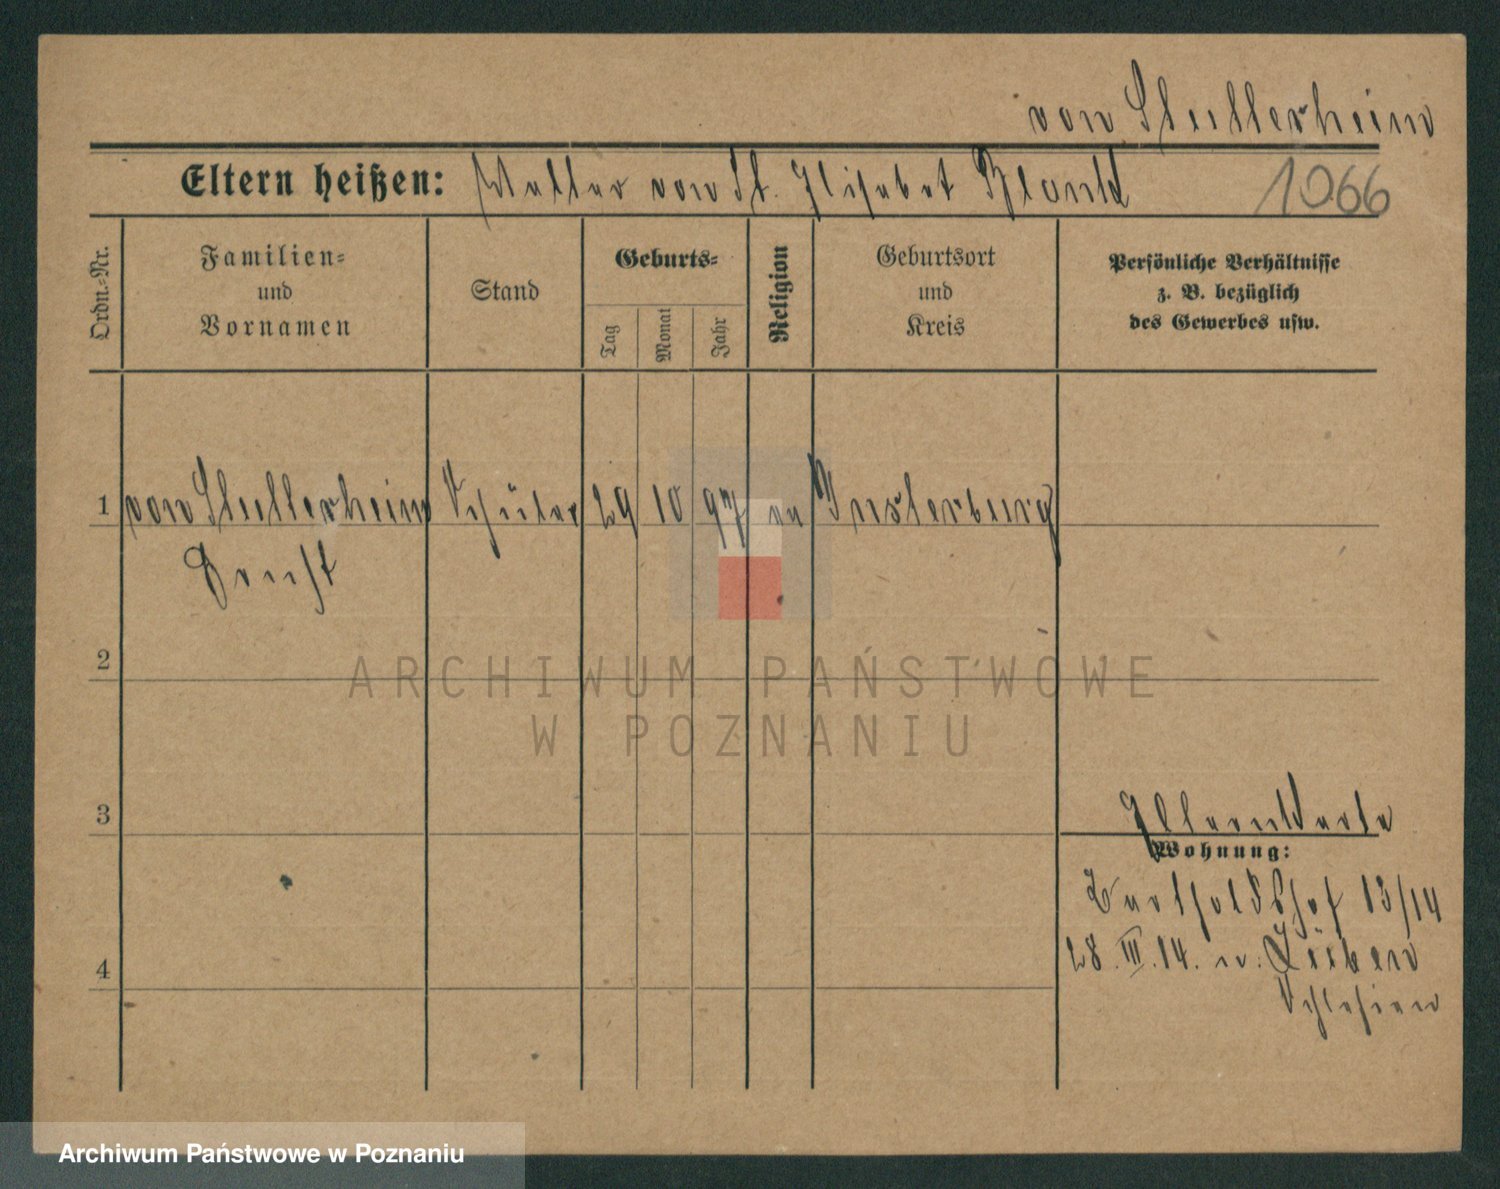 von Stutterheim
Eltern heißen: Walter von St. Elisabet Blank
1066
Ordn.-Nr.
Familien-
und
Vornamen
Stand
Geburts-
Tag
Monat
Jahr
Religion
Geburtsort
und
Kreis
Persönliche Verhältnisse
z. B. bezüglich
des Gewerbes usw.
1 von Stutterheim Schüler 29 10 97 ev Insterburg
Ernst
2
ARCHIWUM PAŃSTWOWE
W POZNANIU
3
Elternkarte
Wohnung:
Bartholdshof 13/14
28. III. 14. n. Lüben
Schlesien
4
Archiwum Państwowe w Poznaniu